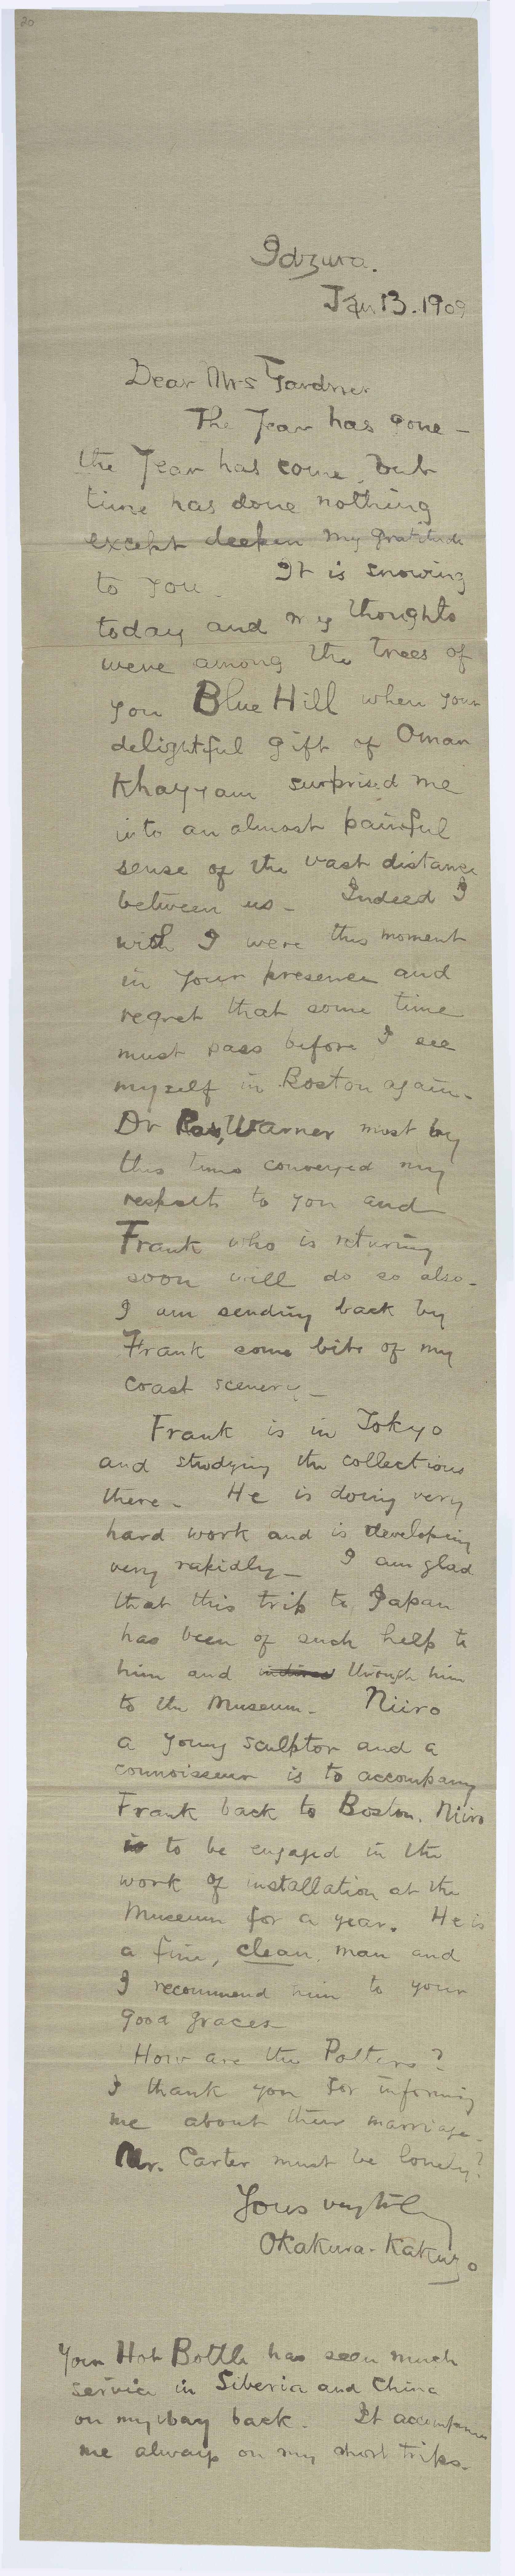 20
Idzura.
Jan 13. 1909
Dear Mrs Gardner
The Year has gone -
the Year has come, but
time has done nothing
except deepen my gratitude
to you. It is snowing
today and my thoughts
were among the trees of
you Blue Hill when your
delightful gift of Omar
Khayyam surprised me
into an almost painful
sense of the vast distance
between us - Indeed I
wish I were this moment
in your presence and
regret that some time
must pass before I see
myself in Boston again -
Dr Ross, Warner must by
this time conveyed my
respects to you and
Frank who is returning
soon will do so also -
I am sending back by
Frank some bits of my
coast scenery -
Frank is in Tokyo
and studying the collections
there - He is doing very
hard work and is developing
very rapidly - I am glad
that this trip to Japan
has been of such help to
him and through him
to the Museum - Niiro
a young sculptor and a
connoisseur is to accompany
Frank back to Boston. Niiro
is to be engaged in the
work of installation at the
Museum for a year. He is
a fine, clean, man and
I recommend him to your
good graces -
How are the Potters?
I thank you for informing
me about their marriage -
Mr. Carter must be lonely?
Yours very truly
Okakura-Kakuzo
Your Hot Bottle has seen much
service in Siberia and China
on my way back. It accompanies
me always on my short trips.